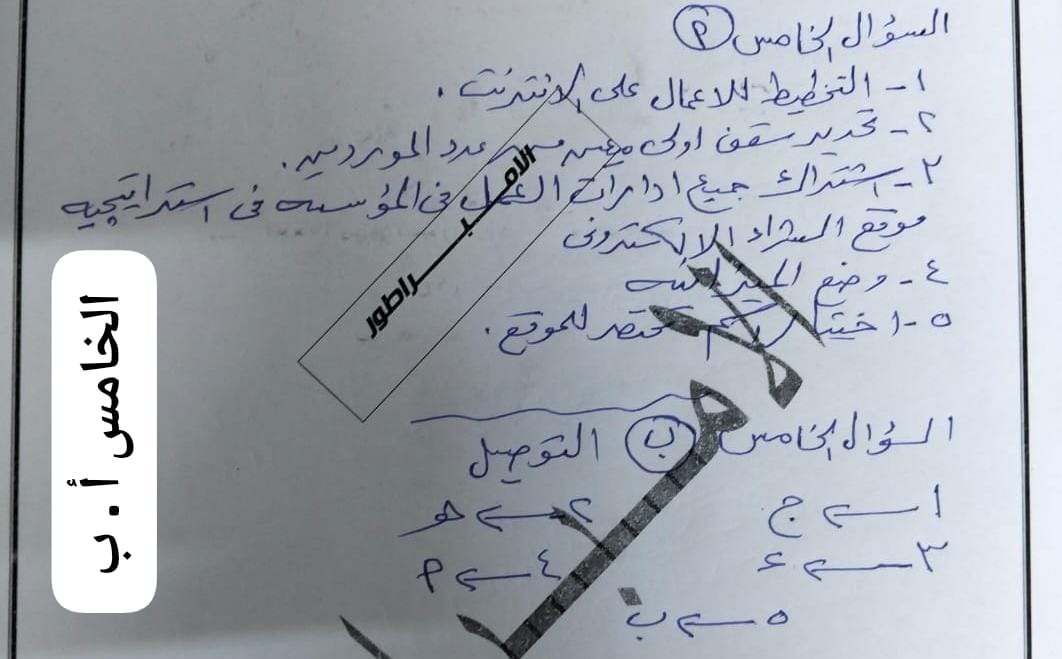 السؤال الخامس (أ)
١- التخطيط للاعمال على الانترنت .
٢- تحديد سقف اولى معين من عدد الموردين .
٣- اشتراك جميع ادارات العمل فى المؤسسه فى استراتيجيه
موقع الشراء الالكترونى
٤- وضع الميزانيه
٥- اختيار اسم مختصر للموقع .
السؤال الخامس (ب) التوصيل
١ ← ج ٢ ← هـ
٣ ← ء ٤ ← أ
٥ ← ب
الخامس أ . ب
الامبراطور